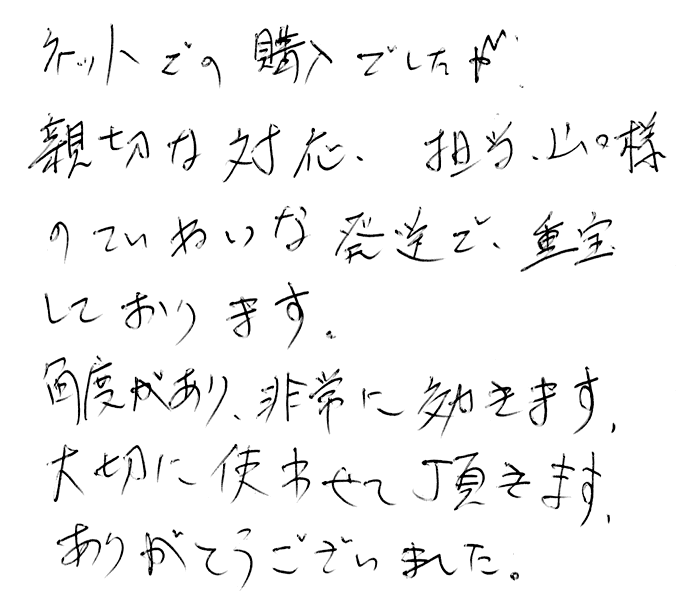 ネットでの購入でしたが、
親切な対応、担当、山口様
のていねいな発送で、重宝
しております。
角度があり、非常に効きます、
大切に使わせて頂きます、
ありがとうございました。